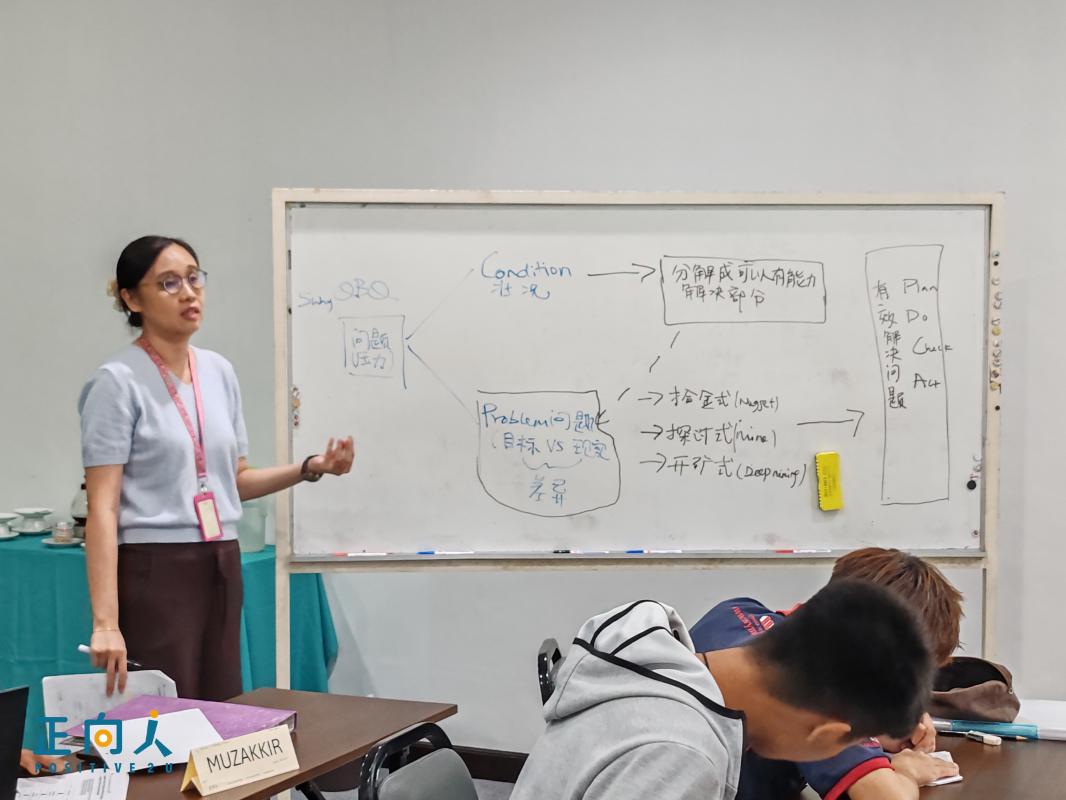 QBQ
问题
压力
Condition
状况
分解成可以有能力
解决部分
Problem问题
(目标 VS 现实
差异
→ 拾金式 (Nugget)
→ 探讨式 (Mine)
→ 开矿式 (Deep mining)
有效解决问题
Plan
Do
Check
Act
MUZAKKIR
正向人
POSITIVE2U